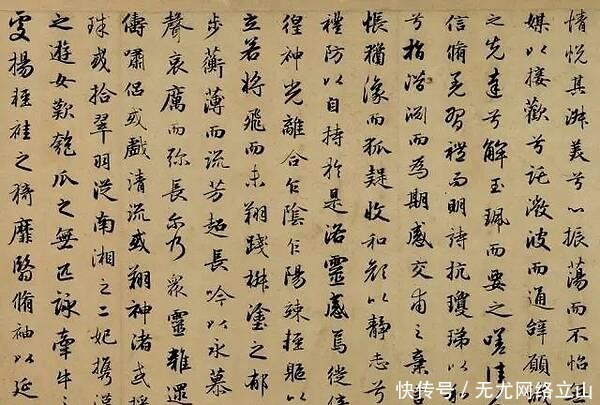 情悦其淑美兮心振蕩而不怡無
媒以接歡兮託微波而通辭願誠
之先達兮解玉珮而要之嗟佳人
信脩羌習禮而明詩抗瓊珶以和
兮指潛淵而為期感交甫之棄
悵猶豫而狐疑收和顏以靜志兮
禮防以自持於是洛靈感焉徙倚
徨神光離合乍陰乍陽竦輕軀以
立若將飛而未翔踐椒塗之郁
步蘅薄而流芳超長吟以永慕
聲哀厲而彌長爾乃衆靈雜遝
儔嘯侶或戲清流或翔神渚或採
珠或拾翠羽從南湘之二妃攜漢
之遊女歎匏瓜之無匹詠牽牛之
處揚輕袿之猗靡翳脩袖以延
快传号/无尤网络立山